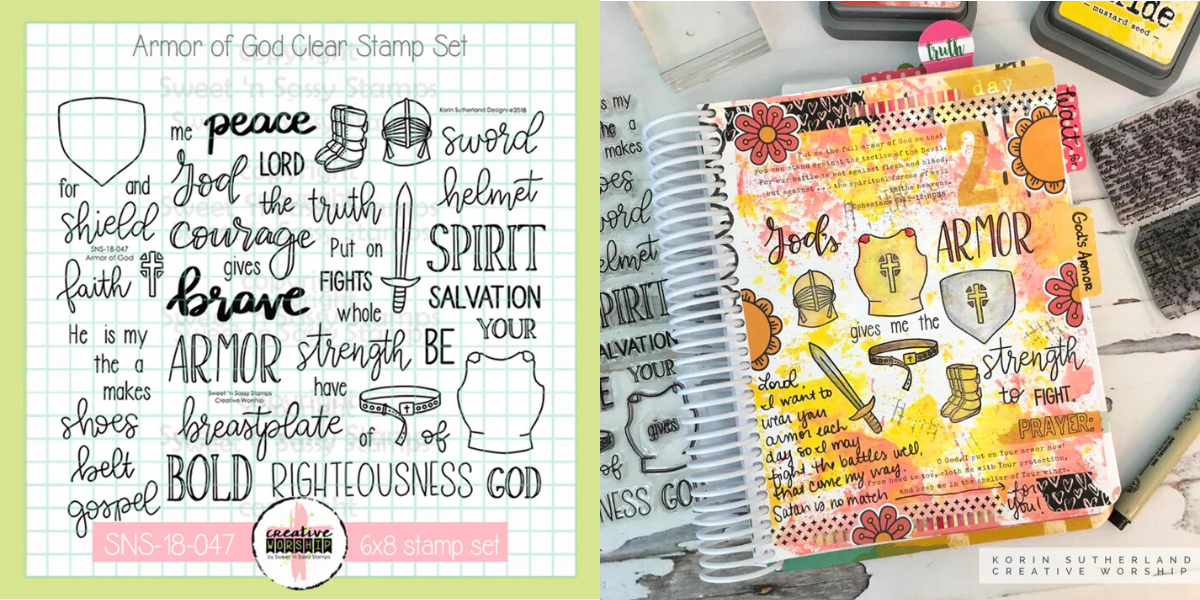 Armor of God Clear Stamp Set
Korin Sutherland Designs ©2018
me peace
LORD
sword
God
for and
the truth
helmet
shield
SNS-18-047
Armor of God
courage
Put on
SPIRIT
faith
gives
FIGHTS
brave
whole
SALVATION
YOUR
He is my
the a
makes
ARMOR
strength
BE
have
Sweet 'n Sassy Stamps
Creative Worship
shoes
breastplate
of of
belt
BOLD
RIGHTEOUSNESS
GOD
gospel
SNS-18-047
creative
WORSHIP
by Sweet 'n Sassy Stamps
6x8 stamp set
- mustard seed -
truth
day
21
Put on the full armor of God so that
you can stand against the tactics of the Devil.
For our battle is not against flesh and blood,
but against . . . the spiritual forces of evil
in the heavens.
God's ARMOR
God's ARMOR
gives me the
strength
to FIGHT.
Lord,
I want to
wear you
armor each
day so I may
fight the battles well,
that come my way.
Satan is no match
for
you!
PRAYER:
O God, I put on Your armor now
from head to toe, cloth me with Your protection,
and keep me in the shelter of Your wings.
is my
makes
YOUR
gives
of
KORIN SUTHERLAND
CREATIVE WORSHIP